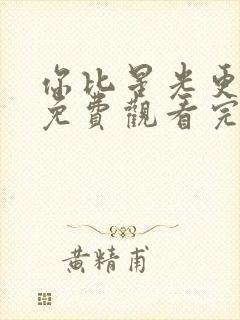 你比星光更
免費觀看完
黄精甫